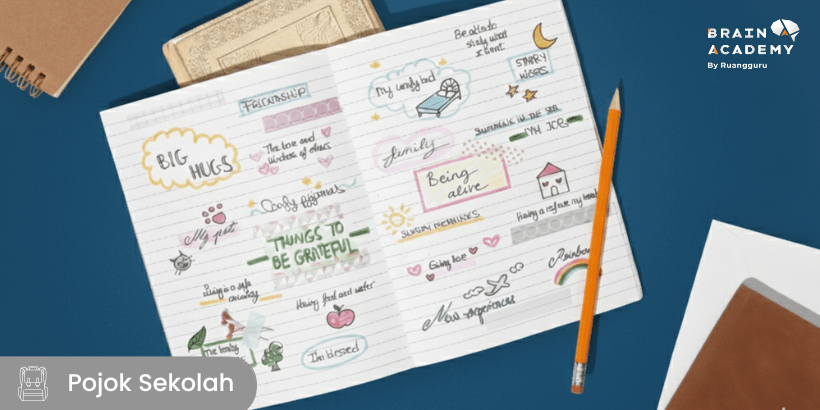 BRAIN
ACADEMY
By Ruangguru
FRIENDSHIP
BIG
HUGS
The love and
kindness of others
Comfy pyjamas
My pet
THINGS TO
BE GRATEFUL
Living in a safe
country
Having food and water
The beauty
I'm blessed
Be able to
study what
I want
My comfy bed
STARRY
SWIMMING IN THE SEA
MY JOB
family
Being
alive
SUNDAY MORNINGS
Having a roof over my head
Giving love
Rainbow
New experiences
Pojok Sekolah